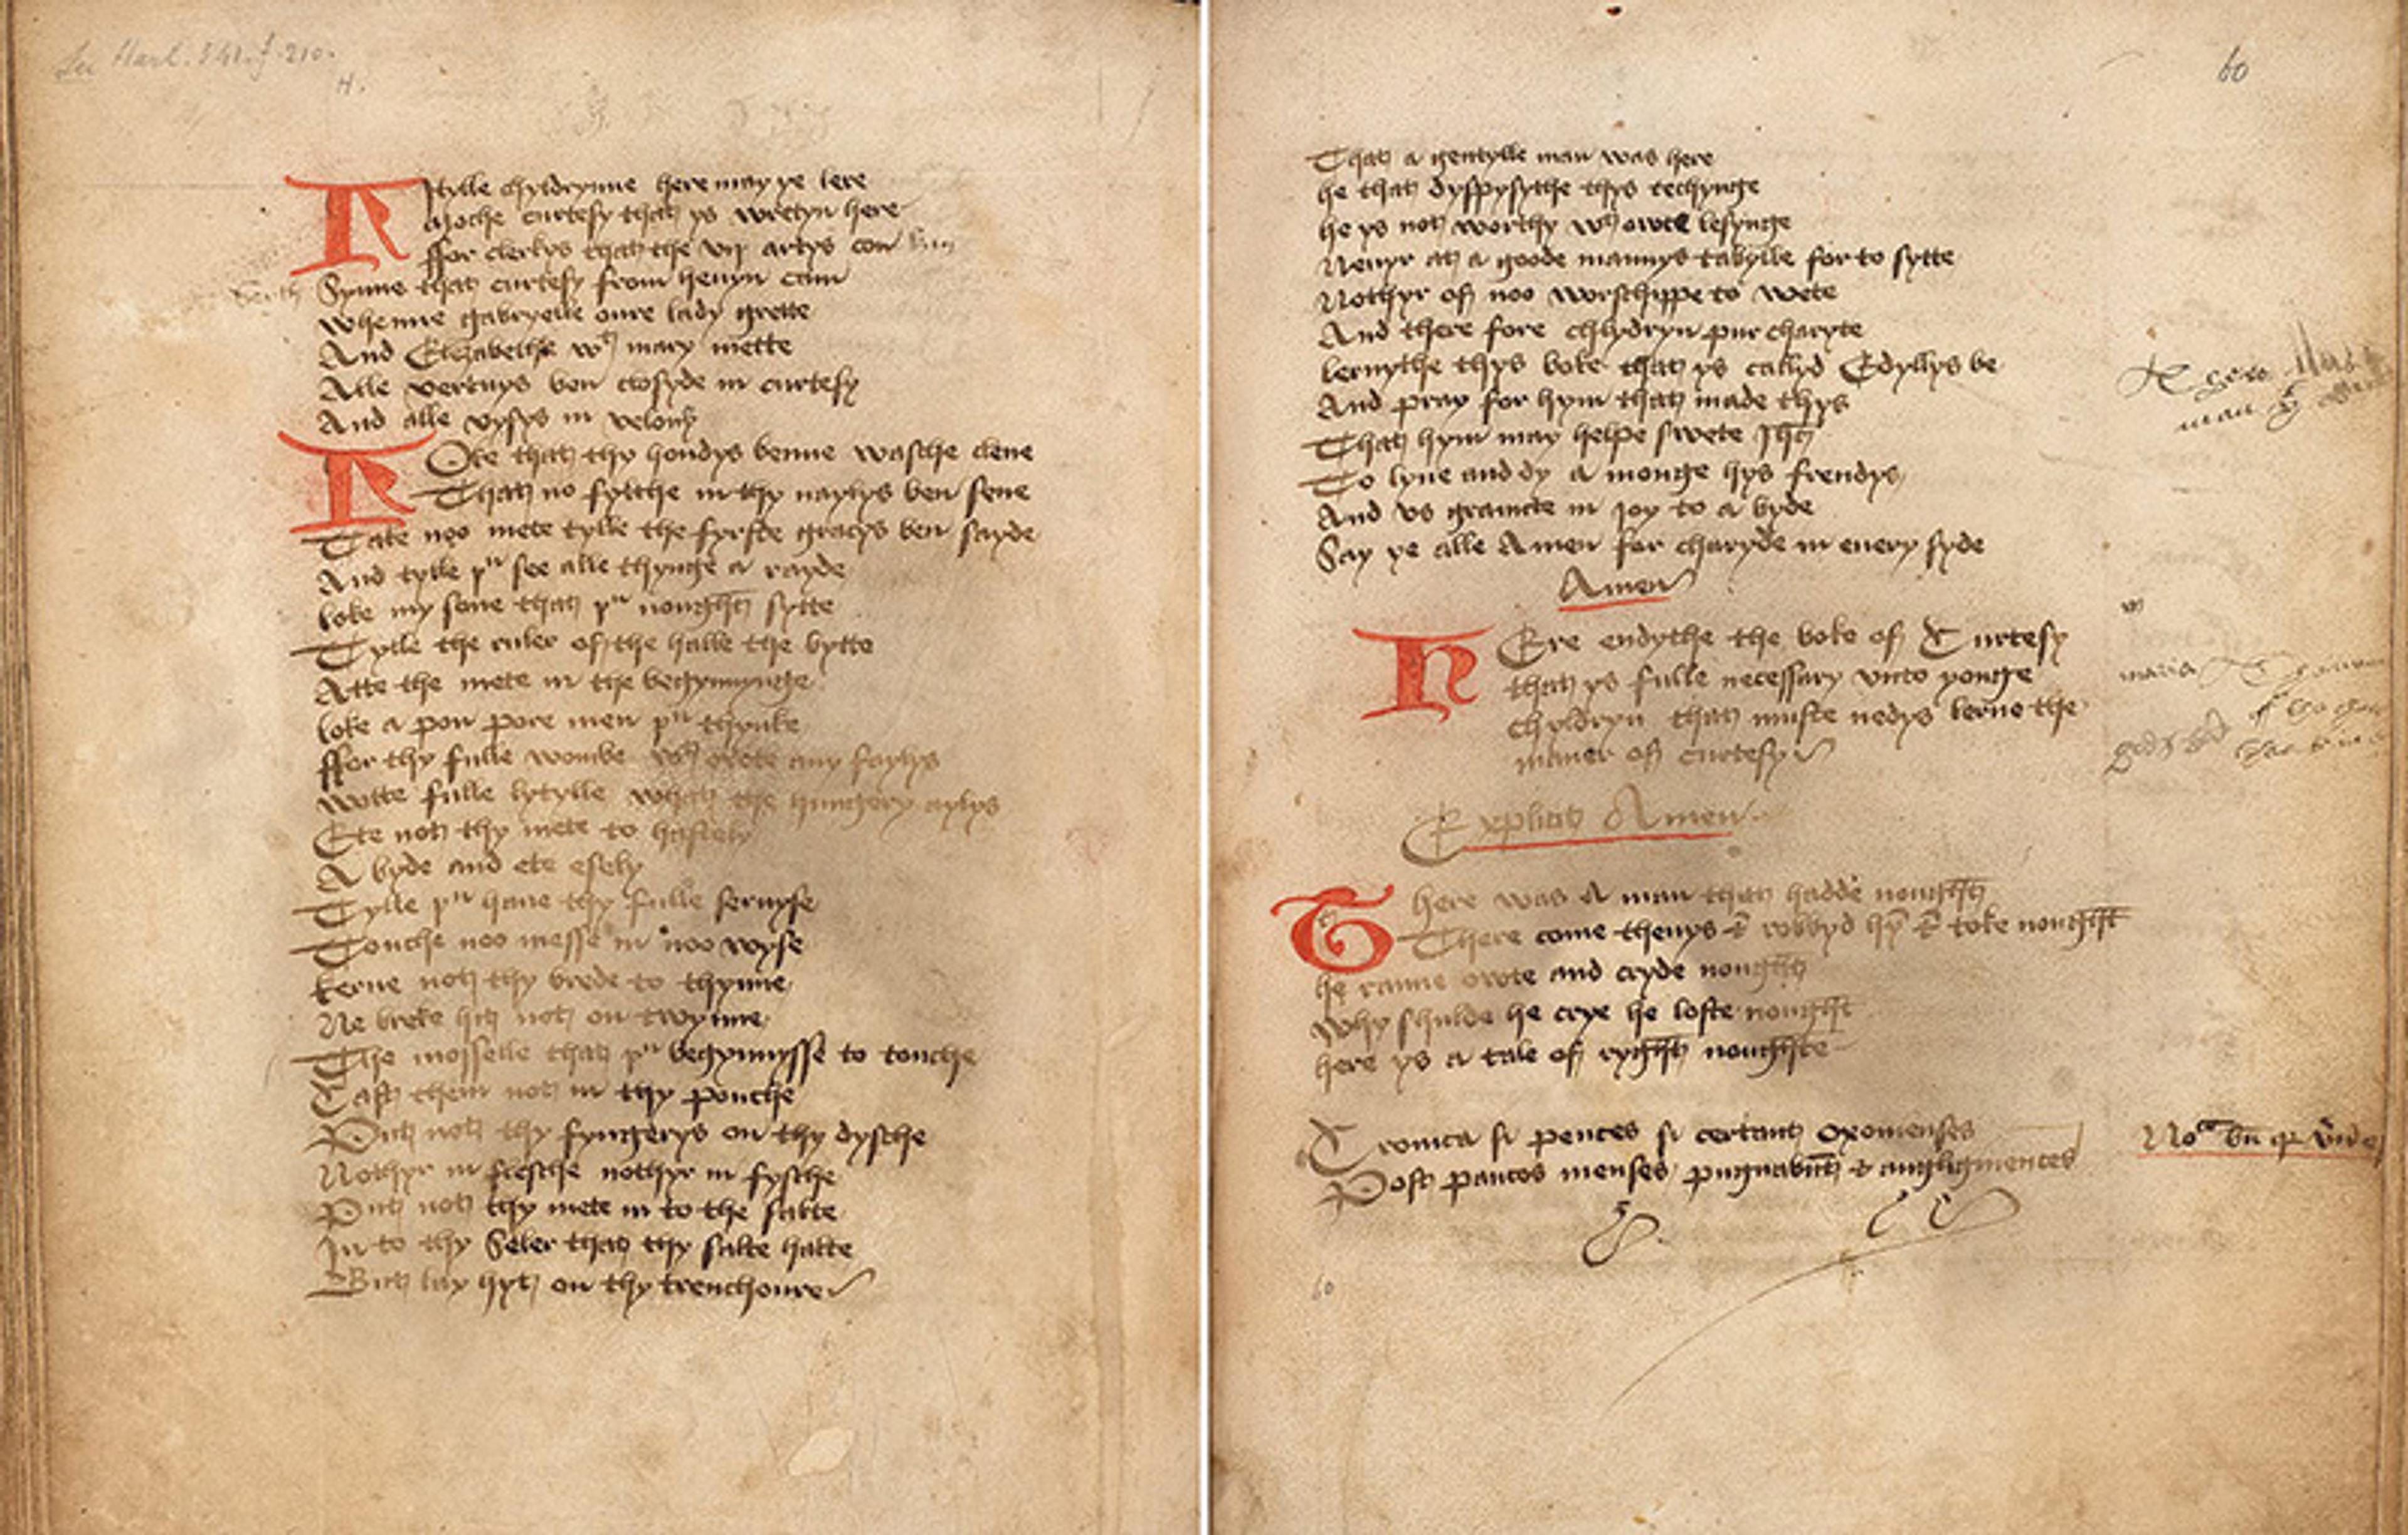 See Harl. 541. f. 210.
H.
Lytylle chyldrynne here may ye lere
Moche curtesy that ys wretyn here
ffor clerkys that the vij artys con
Synne that curtesy from hevyn cam
Whenne gabryelle oure lady grette
And Elizabethe wt mary mette
Alle vertuys ben closyde in curtesy
And alle vysys in velony
Loke that thy hondys benne wasche clene
That no fylthe in thy naylys ben sene
Take noo mete tylle the fyrste gracys ben sayde
And tylle þu see alle thynge a rayde
loke my sone that þu nought sytte
Tylle the ruler of the halle the bytte
Atte the mete in the begynnynge
loke a pon pore men þu thynke
ffor thy fulle wombe wt owte any faylys
Wotte fulle lytylle what the hungery aylys
Ete not thy mete to hastely
A byde and ete esely
Tylle þu have thy fulle servyse
Touche noo messe in noo wyse
kerve not thy brede to thynne
Ne breke hit not on twynne
The mosselle that þu begynnysse to touche
Cast them not in thy pouche
Put not thy fyngerys on thy dysche
Nothyr in flesche nothyr in fysche
Put not thy mete in to the salte
In to thy Seler that thy salte halte
But lay hyt on thy trenchoure
60
That a gentylle man was here
he that dyspysythe thys techynge
he ys not worthy wt owte lesynge
Nevyr at a goode mannys tabylle for to sytte
Nothyr of noo worschippe to wete
And there fore chyldryn pur charyte
lernythe thys boke that ys callyd Edyllys be
And pray for hym that made thys
That hym may helpe swete Jhc
To lyve and dy a monge hys frendys
And vs graunte in joy to a byde
Say ye alle Amen for charyde in every syde
Amen
Ere endythe the boke of Curtesy
that ys fulle necessary vnto yonge
chyldryn that muste nedys lerne the
maner of curtesy
Explicit Amen
There was a man that hadde nought
There come thevys & robbyd hym & toke nought
he ranne owte and cryde nought
Why schulde he crye he loste nought
here ys a tale of ryght noughte
Cronica si pences si certant oxonienses
Post paucos menses pugnabunt & angligniences
60